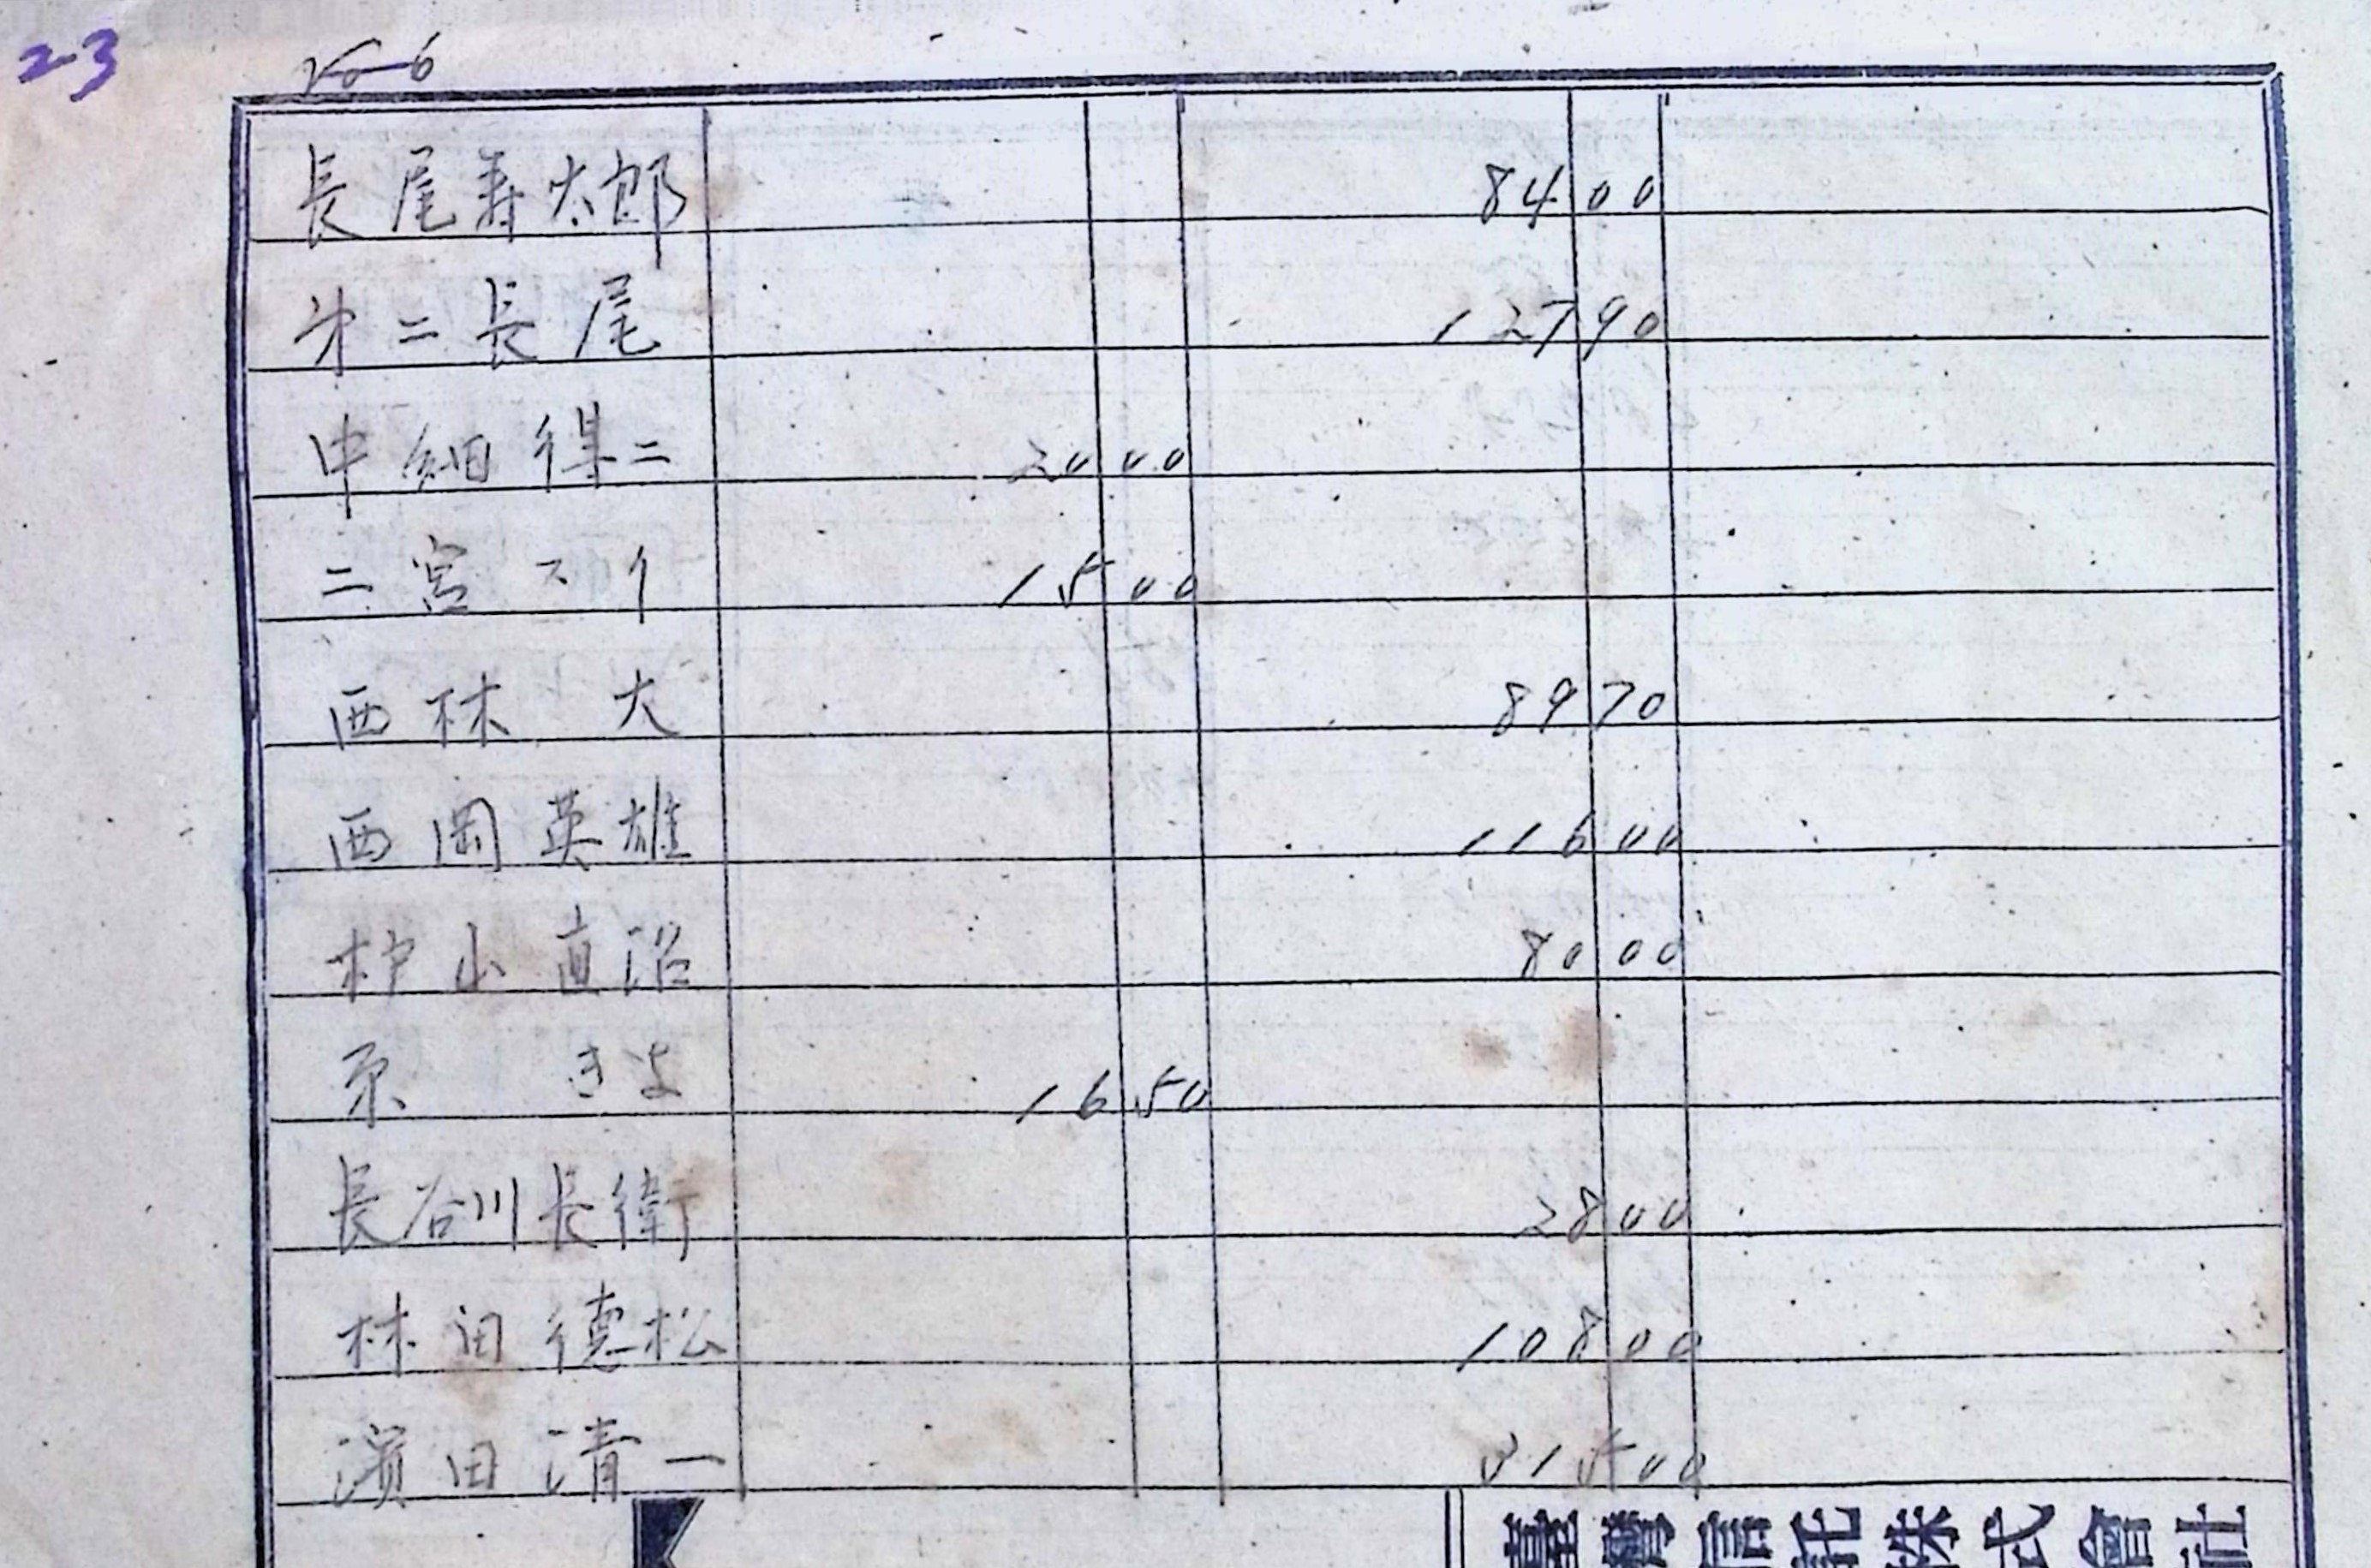 23
長尾寿太郎 8400
才二長尾 12790
中細得二 2000
二宮 1500
西林 大 8970
西岡英雄 11600
山直治 8000
きよ 1650
長谷川長衛 2800
林田德松 10800
濱田清一 31500
臺灣信託株式會社